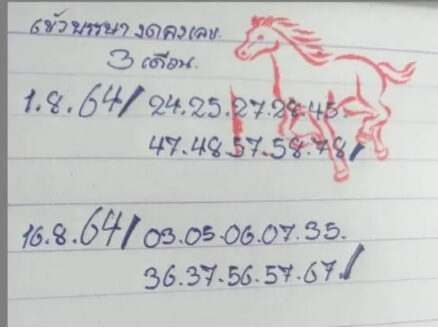 เข้าพรรษา งดคงเลข
3 เดือน.
1.8.64/ 24.25.27.28.45.
47.48.57.58.78/
16.8.64/ 03.05.06.07.35.
36.37.56.57.67./